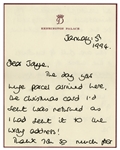 KENSINGTON PALACE
January 5th
1994.
Dear Joyce,
The day you
parcel arrived here,
the Christmas card I'd
sent was returned as
I had sent it to the
wrong address!
Thank you so much for